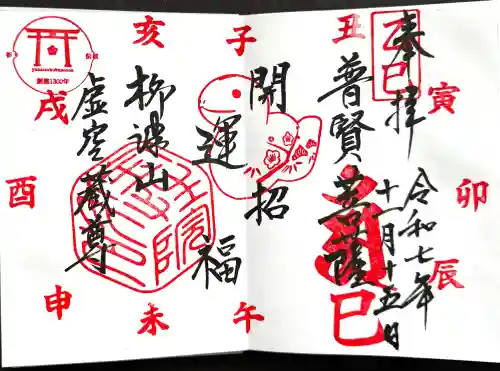 奉拝
乙巳
令和七年
十一月十五日
普賢菩薩
開運招福
柳津山
虚空蔵尊
子
丑
寅
卯
辰
巳
午
未
申
酉
戌
亥
創建1300年